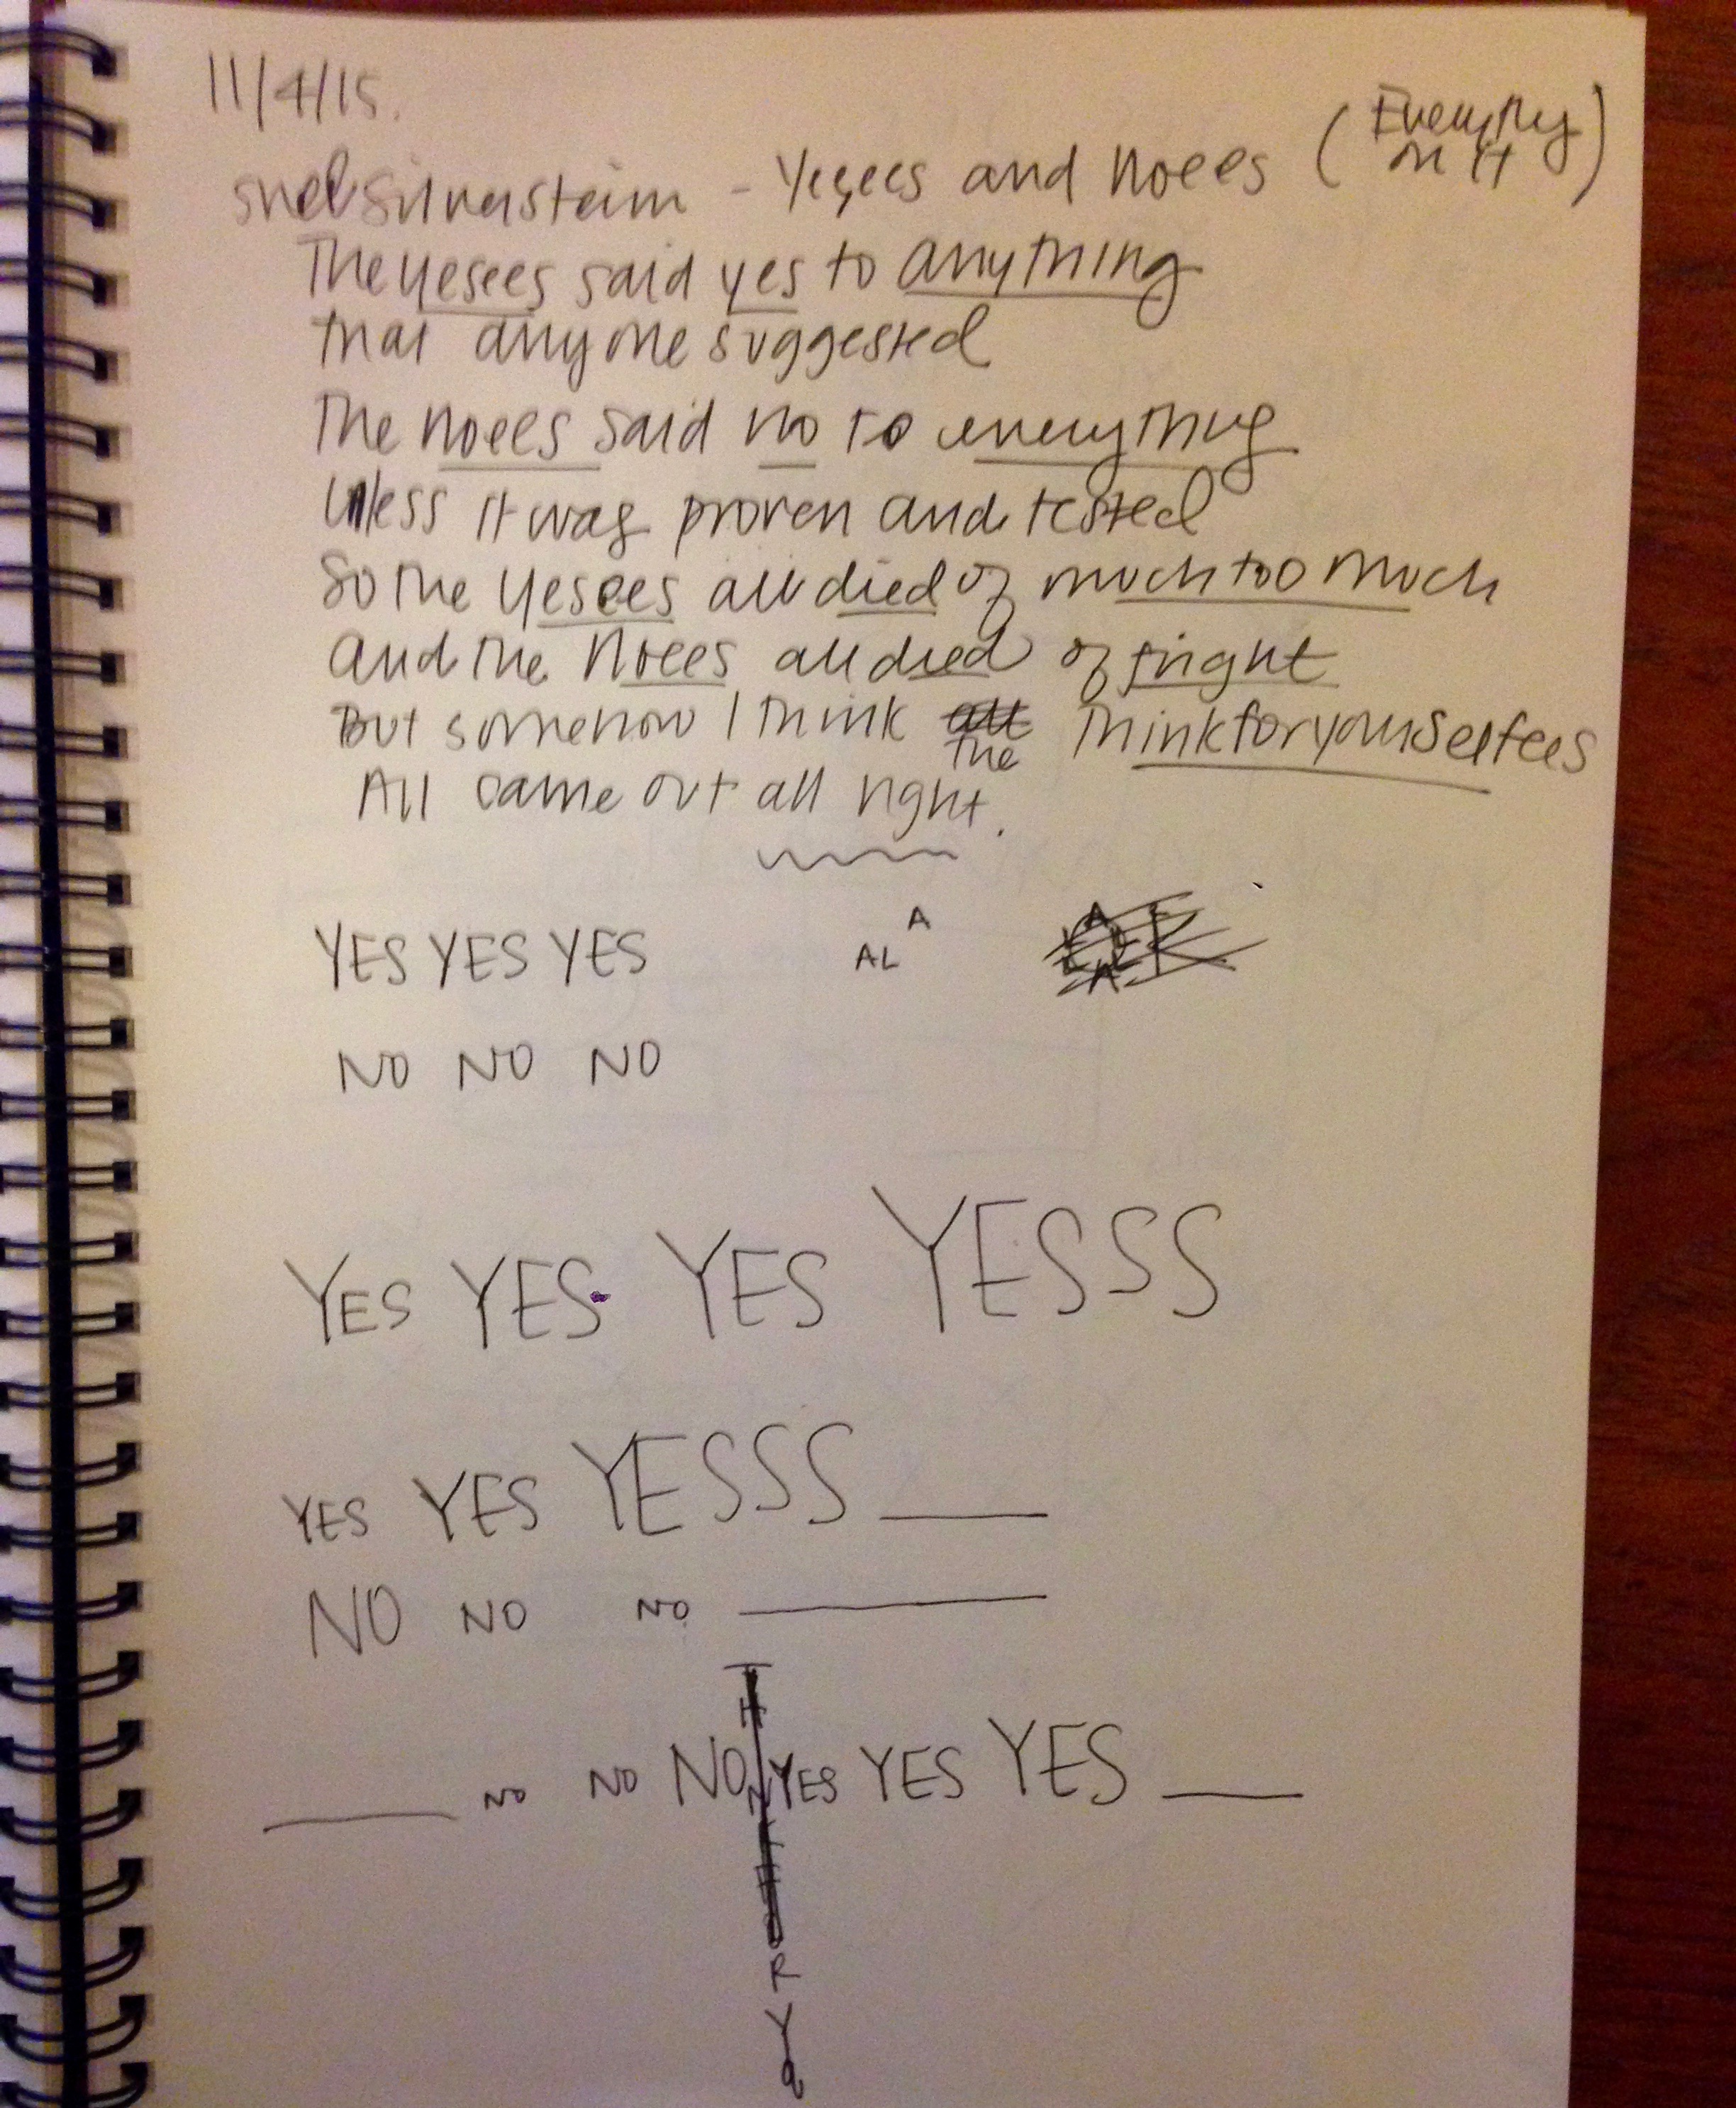 11/4/15.
Shel Silverstein - Yesees and Noees (Everything on it)
The yesees said yes to anything
that anyone suggested
The noees said no to everything
Unless it was proven and tested
So the Yesees all died of much too much
and the Noees all died of fright
But somehow I think the Thinkforyourselfees
All came out all right.
YES YES YES
A
AL
NO NO NO
YES YES YES YESSS
YES YES YESSS
NO NO NO
NO NO NO YES YES YES
R
Y